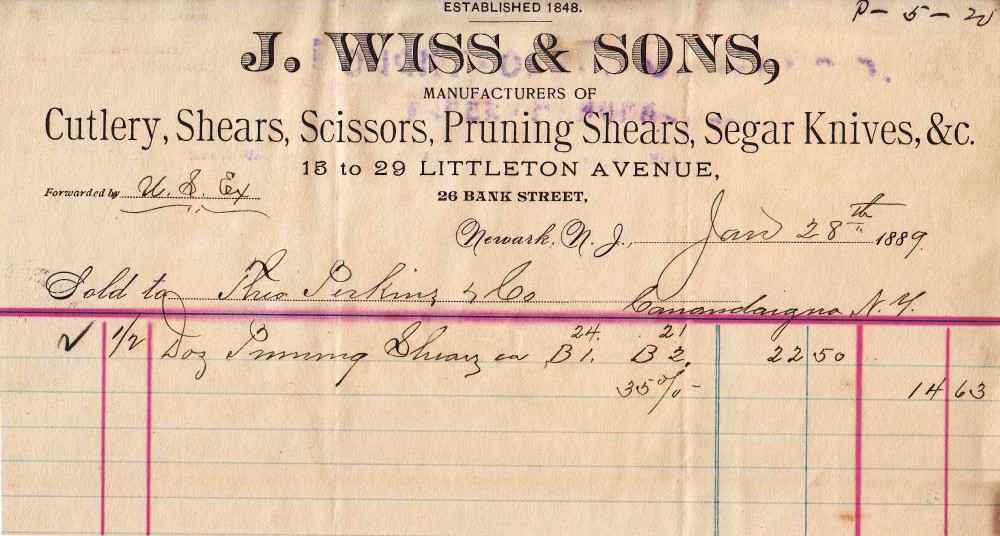 ESTABLISHED 1848.
P- 5- 20
J. WISS & SONS,
MANUFACTURERS OF
Cutlery, Shears, Scissors, Pruning Shears, Segar Knives, &c.
15 to 29 LITTLETON AVENUE,
Forwarded by U. S. Ex
26 BANK STREET,
Newark, N. J., Jan 28th 1889.
Sold to Theo Perkins & Co Canandaigua N. Y.
24. 21
✓ 1/2 Doz Pruning Shears ea B 1. B 2. 22 50
35%- 14 63